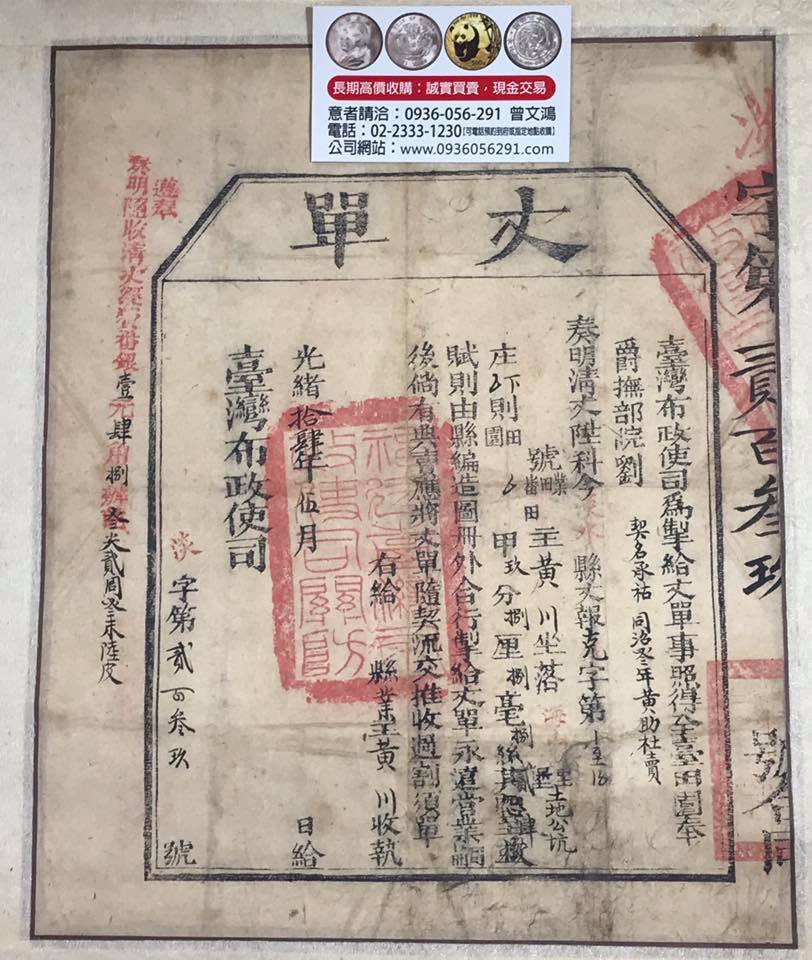 長期高價收購：誠實買賣，現金交易
意者請洽：0936-056-291 曾文鴻
電話：02-2333-1230【可電話預約到府或指定地點收購】
公司網站：www.0936056291.com
丈單
字第貳百叁玖
臺灣布政使司為掣給丈單事照得全臺田園奉
爵撫部院劉
契名承祐 同治叁年黃助杜賣
奏明清丈陞科今淡水縣丈報克字第
號業主黃川坐落
土地公坑
庄下則田園 甲玖分捌厘捌毫捌絲
賦則由縣編造圖冊外合行掣給丈單永遠營業
後倘有典賣應將丈單隨契流交推收過割須單
右給 縣業主黃川收執
光緒拾肆年伍月 日給
臺灣布政使司
淡字第貳百叁玖 號
遵奉
奏明隨收清丈經費番銀壹元肆角捌